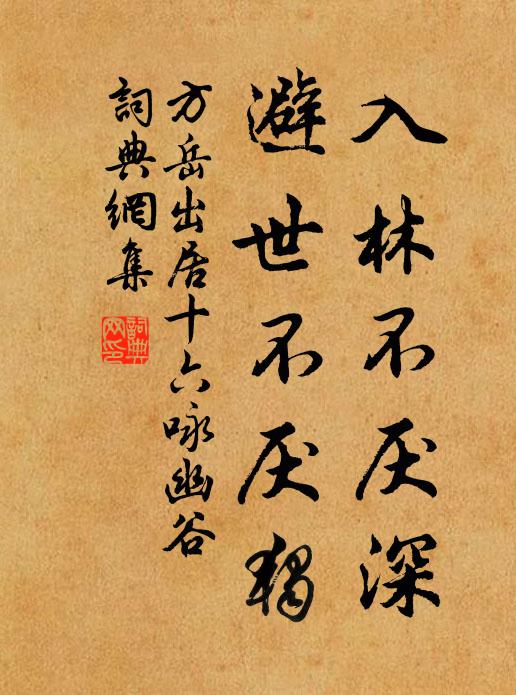 入林不厌深
避世不厌独
方岳出居十六咏幽谷
詞典網集
詞典网印